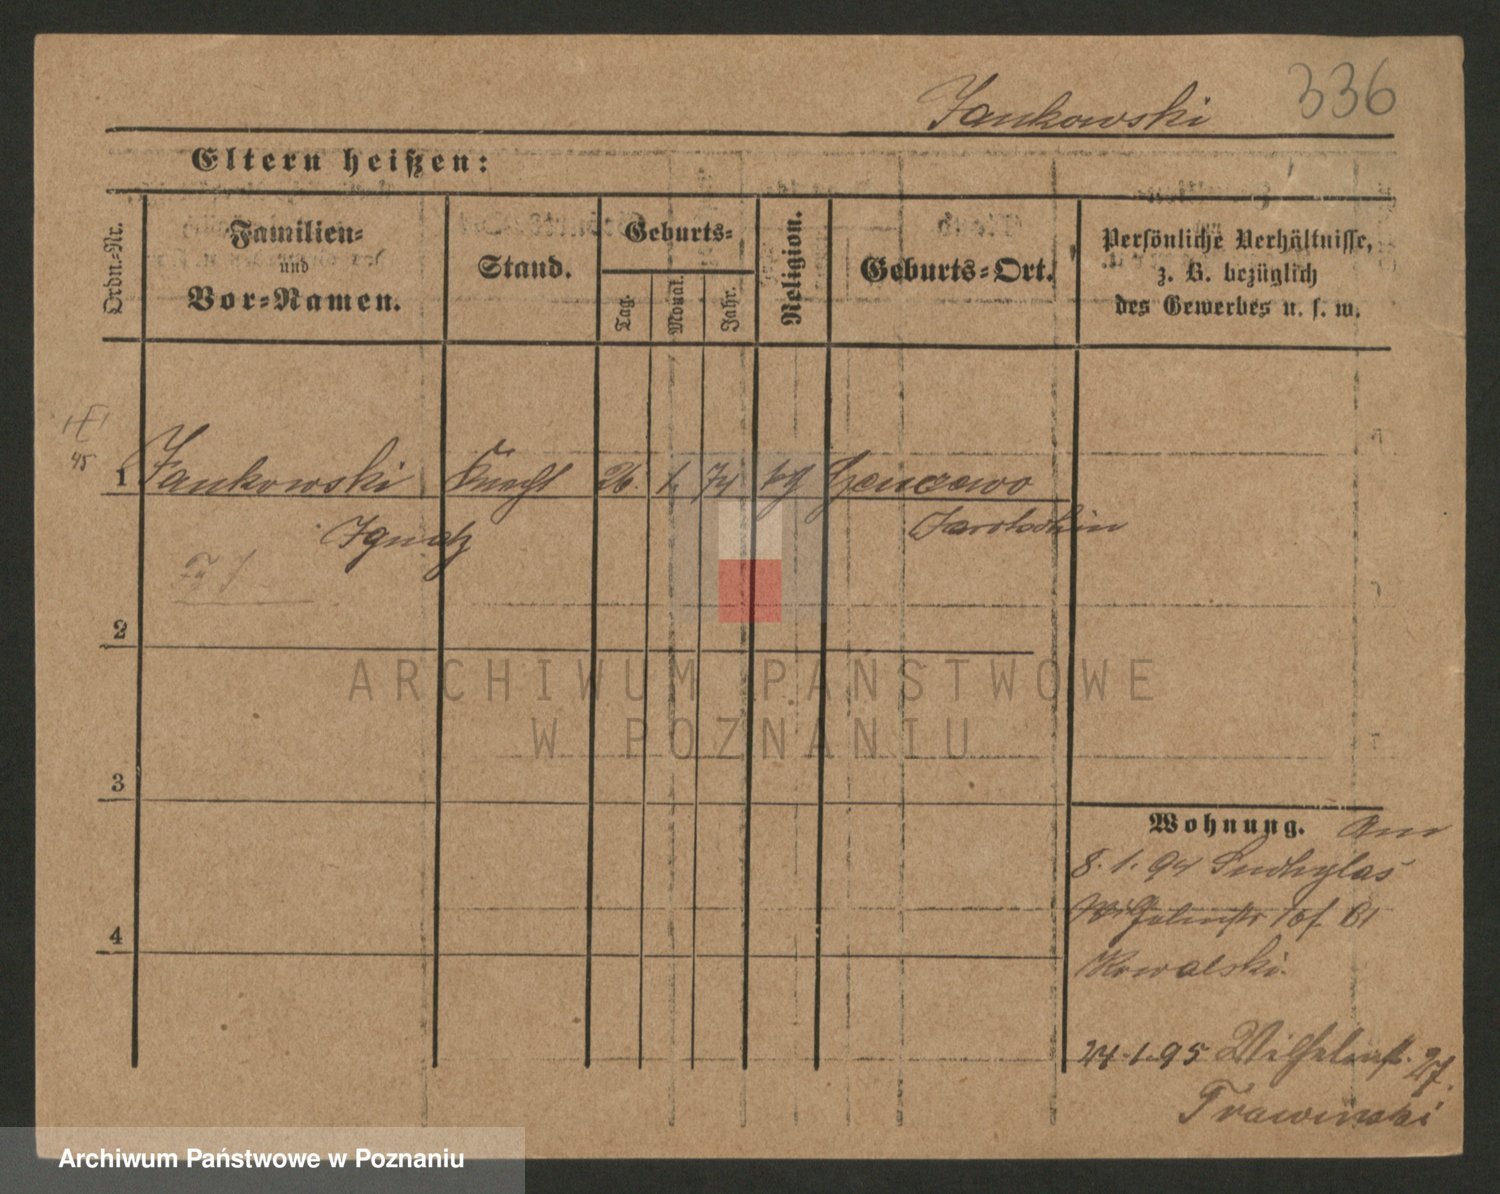 Jankowski 336
Eltern heißen:
Ordn.-Nr.
Familien-
und
Vor-Namen.
Stand.
Geburts-
Tag.
Monat.
Jahr.
Religion.
Geburts-Ort.
Persönliche Verhältnisse,
z. B. bezüglich
des Gewerbes u. s. w.
45
1 Jankowski Knecht 26. 1. 74
Ignatz Jarotschin
2
3
4
Wohnung. Am
8.1.94
Wilhelmstr
Kowalski.
24.1.95 Wilhelmstr. 27.
Trawinski
ARCHIWUM PAŃSTWOWE
W POZNANIU
Archiwum Państwowe w Poznaniu